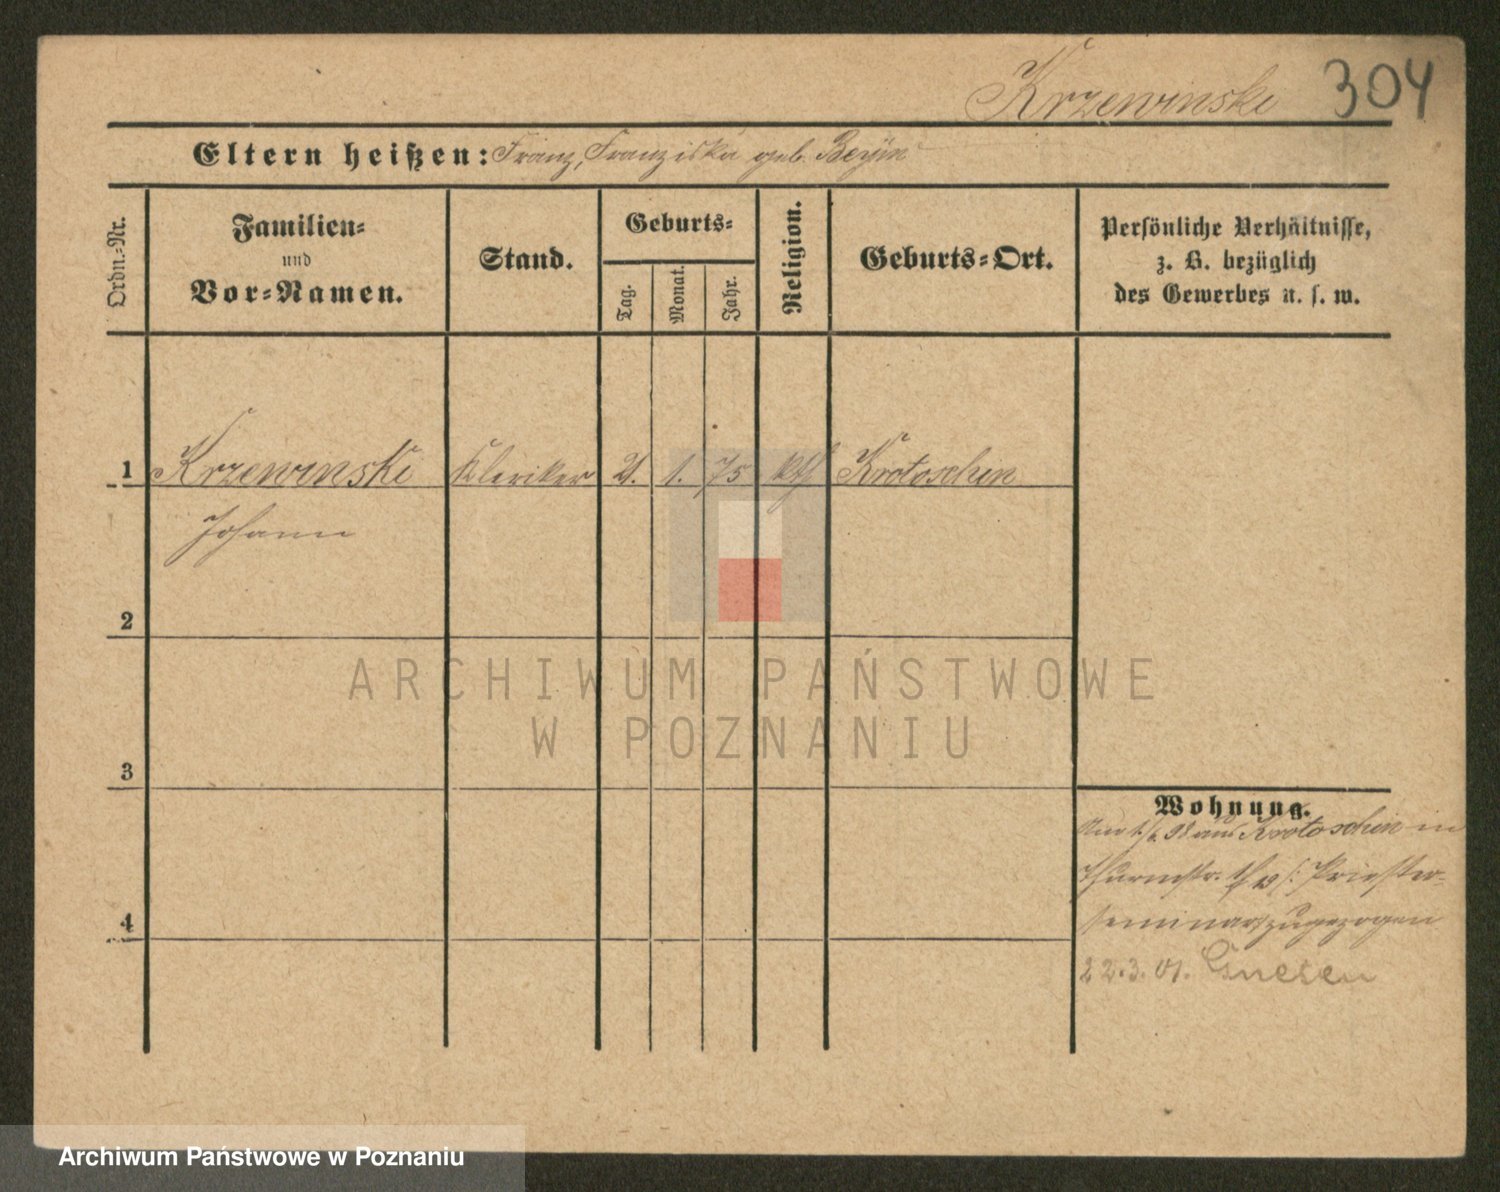 Krzewinski 304
Eltern heißen: Franz, Franziska geb. Beym
Ordn.-Nr.
Familien-
und
Vor-Namen.
Stand.
Geburts-
Tag.
Monat.
Jahr.
Religion.
Geburts-Ort.
Persönliche Verhältnisse,
z. B. bezüglich
des Gewerbes u. s. w.
1 Krzewinski Kleriker 2. 1. 75 kth Krotoschin
Johann
2
3
4
Wohnung.
98 aus Krotoschin in
Thurmstr. Priester-
seminar zugezogen
22.3.01. Gnesen
ARCHIWUM PAŃSTWOWE
W POZNANIU
Archiwum Państwowe w Poznaniu